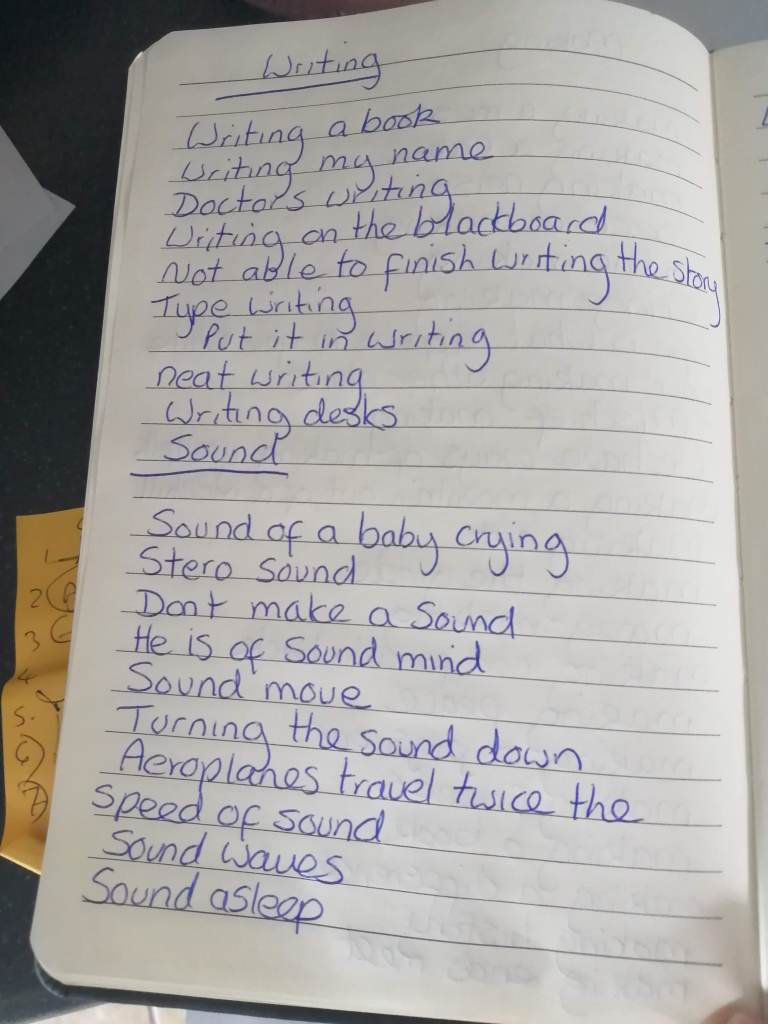 Writing
Writing a book
Writing my name
Doctors writing
Writing on the blackboard
Not able to finish writing the story
Type writing
Put it in writing
neat writing
Writing desks
Sound
Sound of a baby crying
Stero sound
Dont make a sound
He is of sound mind
Sound move
Turning the sound down
Aeroplanes travel twice the
speed of sound
Sound waves
Sound asleep
2
3
4
5.
6)
7)